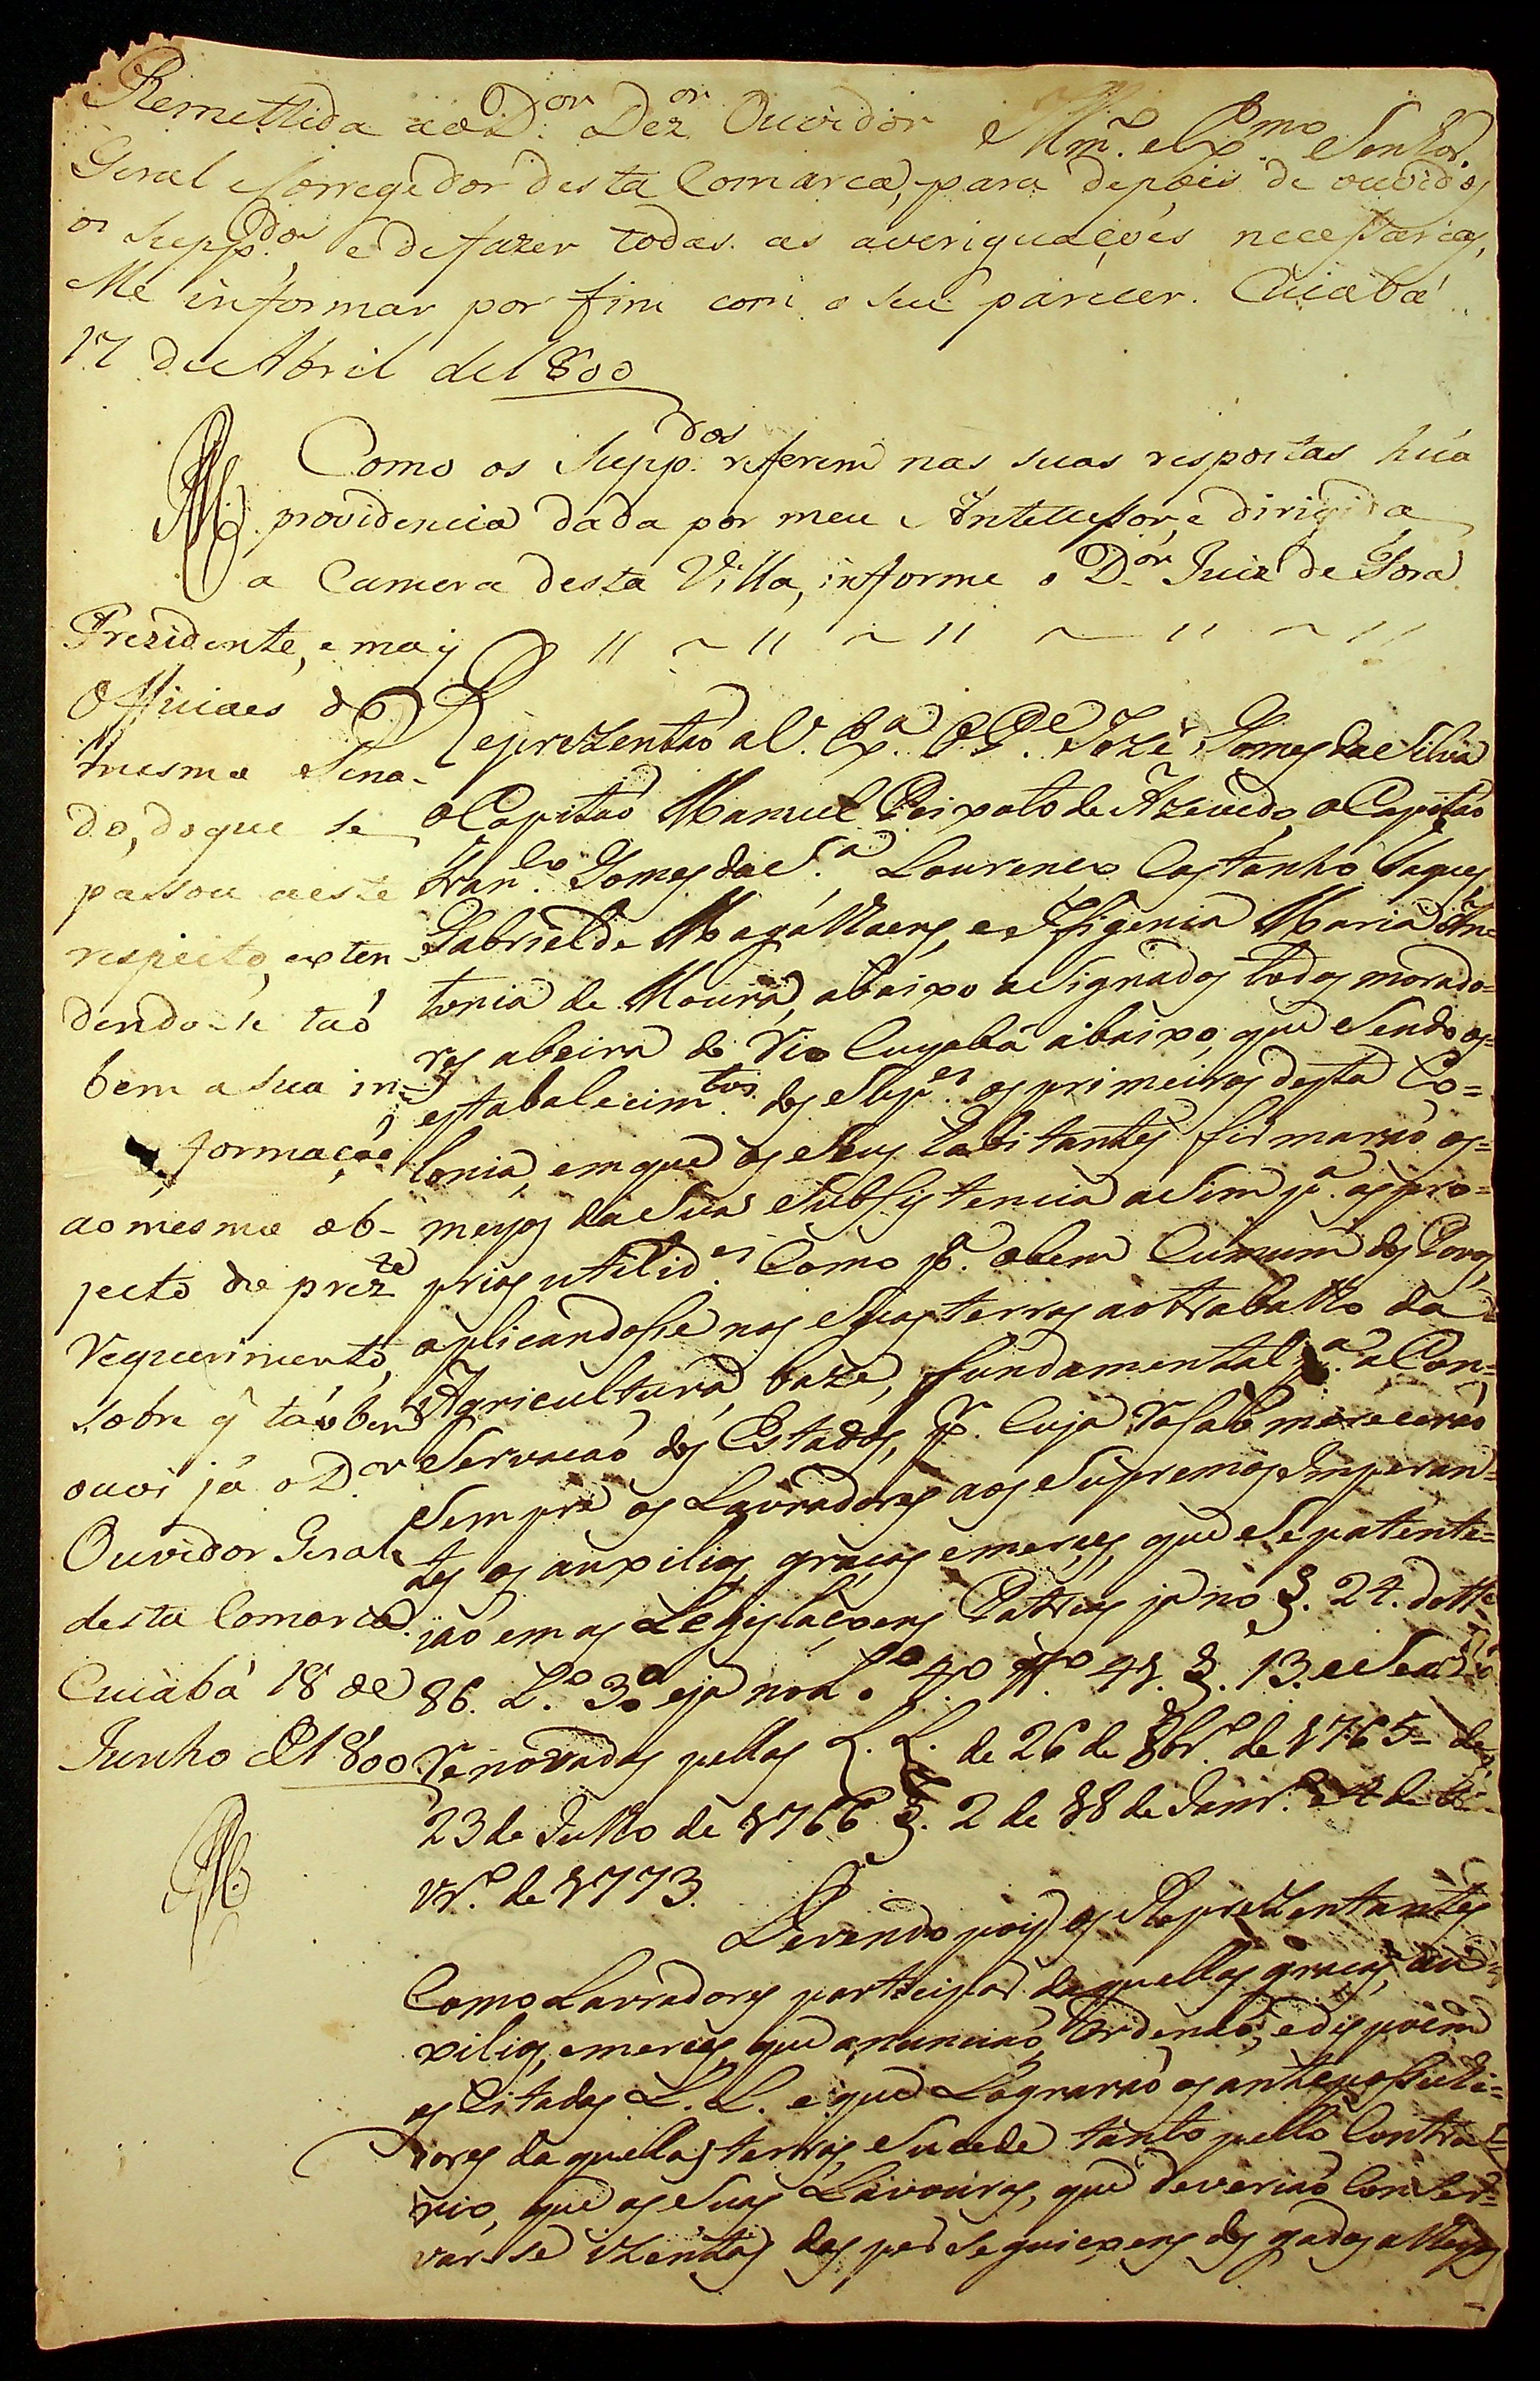 Remettida ao D.or Dez.or Ouvidor
Geral e Corregedor desta Comarca, para depois de ouvidos
os Supp.dos e de fazer todas as averiguaçoẽs necessarias,
Me informar por fim com o seu parecer. Cuiabá
17 de Abril de 1800
Como os Supp.dos referem nas suas respostas hũa
providencia dada por meu Antecessor, e dirigida
a Camera desta Villa, informe o D.or Juiz de Fora
Prezidente, e mais
Officiaes do
mesmo Sena-
do, do que se
passou a este
respeito, exten-
dendo-se taõ
bem a sua in-
formaçaõ
ao mesmo ob-
jecto do prez.te
requerimento,
sobre q̃ taõbem
ouvi já o D.or
Ouvidor Geral
desta Comarca.
Cuiabá 18 de
Junho de 1800
Illm.o e Exmo Senhor.
Reprezentaõ a V. Ex.a o P.e Jozé Gomes da Silva
o Capitaõ Manuel Peixoto de Azevedo, o Capitaõ
Fran.co Gomes da S.a Lourenço Castanho Vaques
Gabriel de Magalhaens, e Ifigenia Maria An=
tonia de Moura, abaixo asignados todos morado=
res abeira do Rio Cuyabá abaixo, que sendo os=
estabalecim.tos dos Sup.es os primeiros desta Co=
lonia, em que os seus habitantes firmaraõ os=
meyos da sua subsistencia asim p.a as pro=
prias utilid.es como p.a obem Cumum dos Povos,
aplicandosse nas suas terras ao trabalho da
Agricultura, baze, fundamental p.a a Con=
servacaõ dos Estados, p.r cuja rasaõ mereceraõ
sempre os Lavradores aos Supremos Imperan=
tes os auxilios, graças, e merces, que se patente=
jaõ em as Legislaçoens Patrias ja no §. 24. do tt.o
86. L.o 3.o e ja no L.o 4.o tt.o 43. §. 13. e
renovadas pellas L. L. de 26 de 8br.o de 1765 = de
23 de Julho de 1766 §. 2 de 18 de Janr.o e 4 de
vr.o de 1773.
Devendo pois os Reprezentantes
Como Lavradores participar daquellas graças, au=
xilios, e merces, que anunciaõ, ordenaõ, e dispoem
as Citadas L. L. e que Lograraõ os antepossuhi=
dores daquellas terras, sucede tanto pello Contra=
rio, que as suas Lavouras, que deveriaõ conser=
var-se izentas das perseguiçoens dos gados alheyos